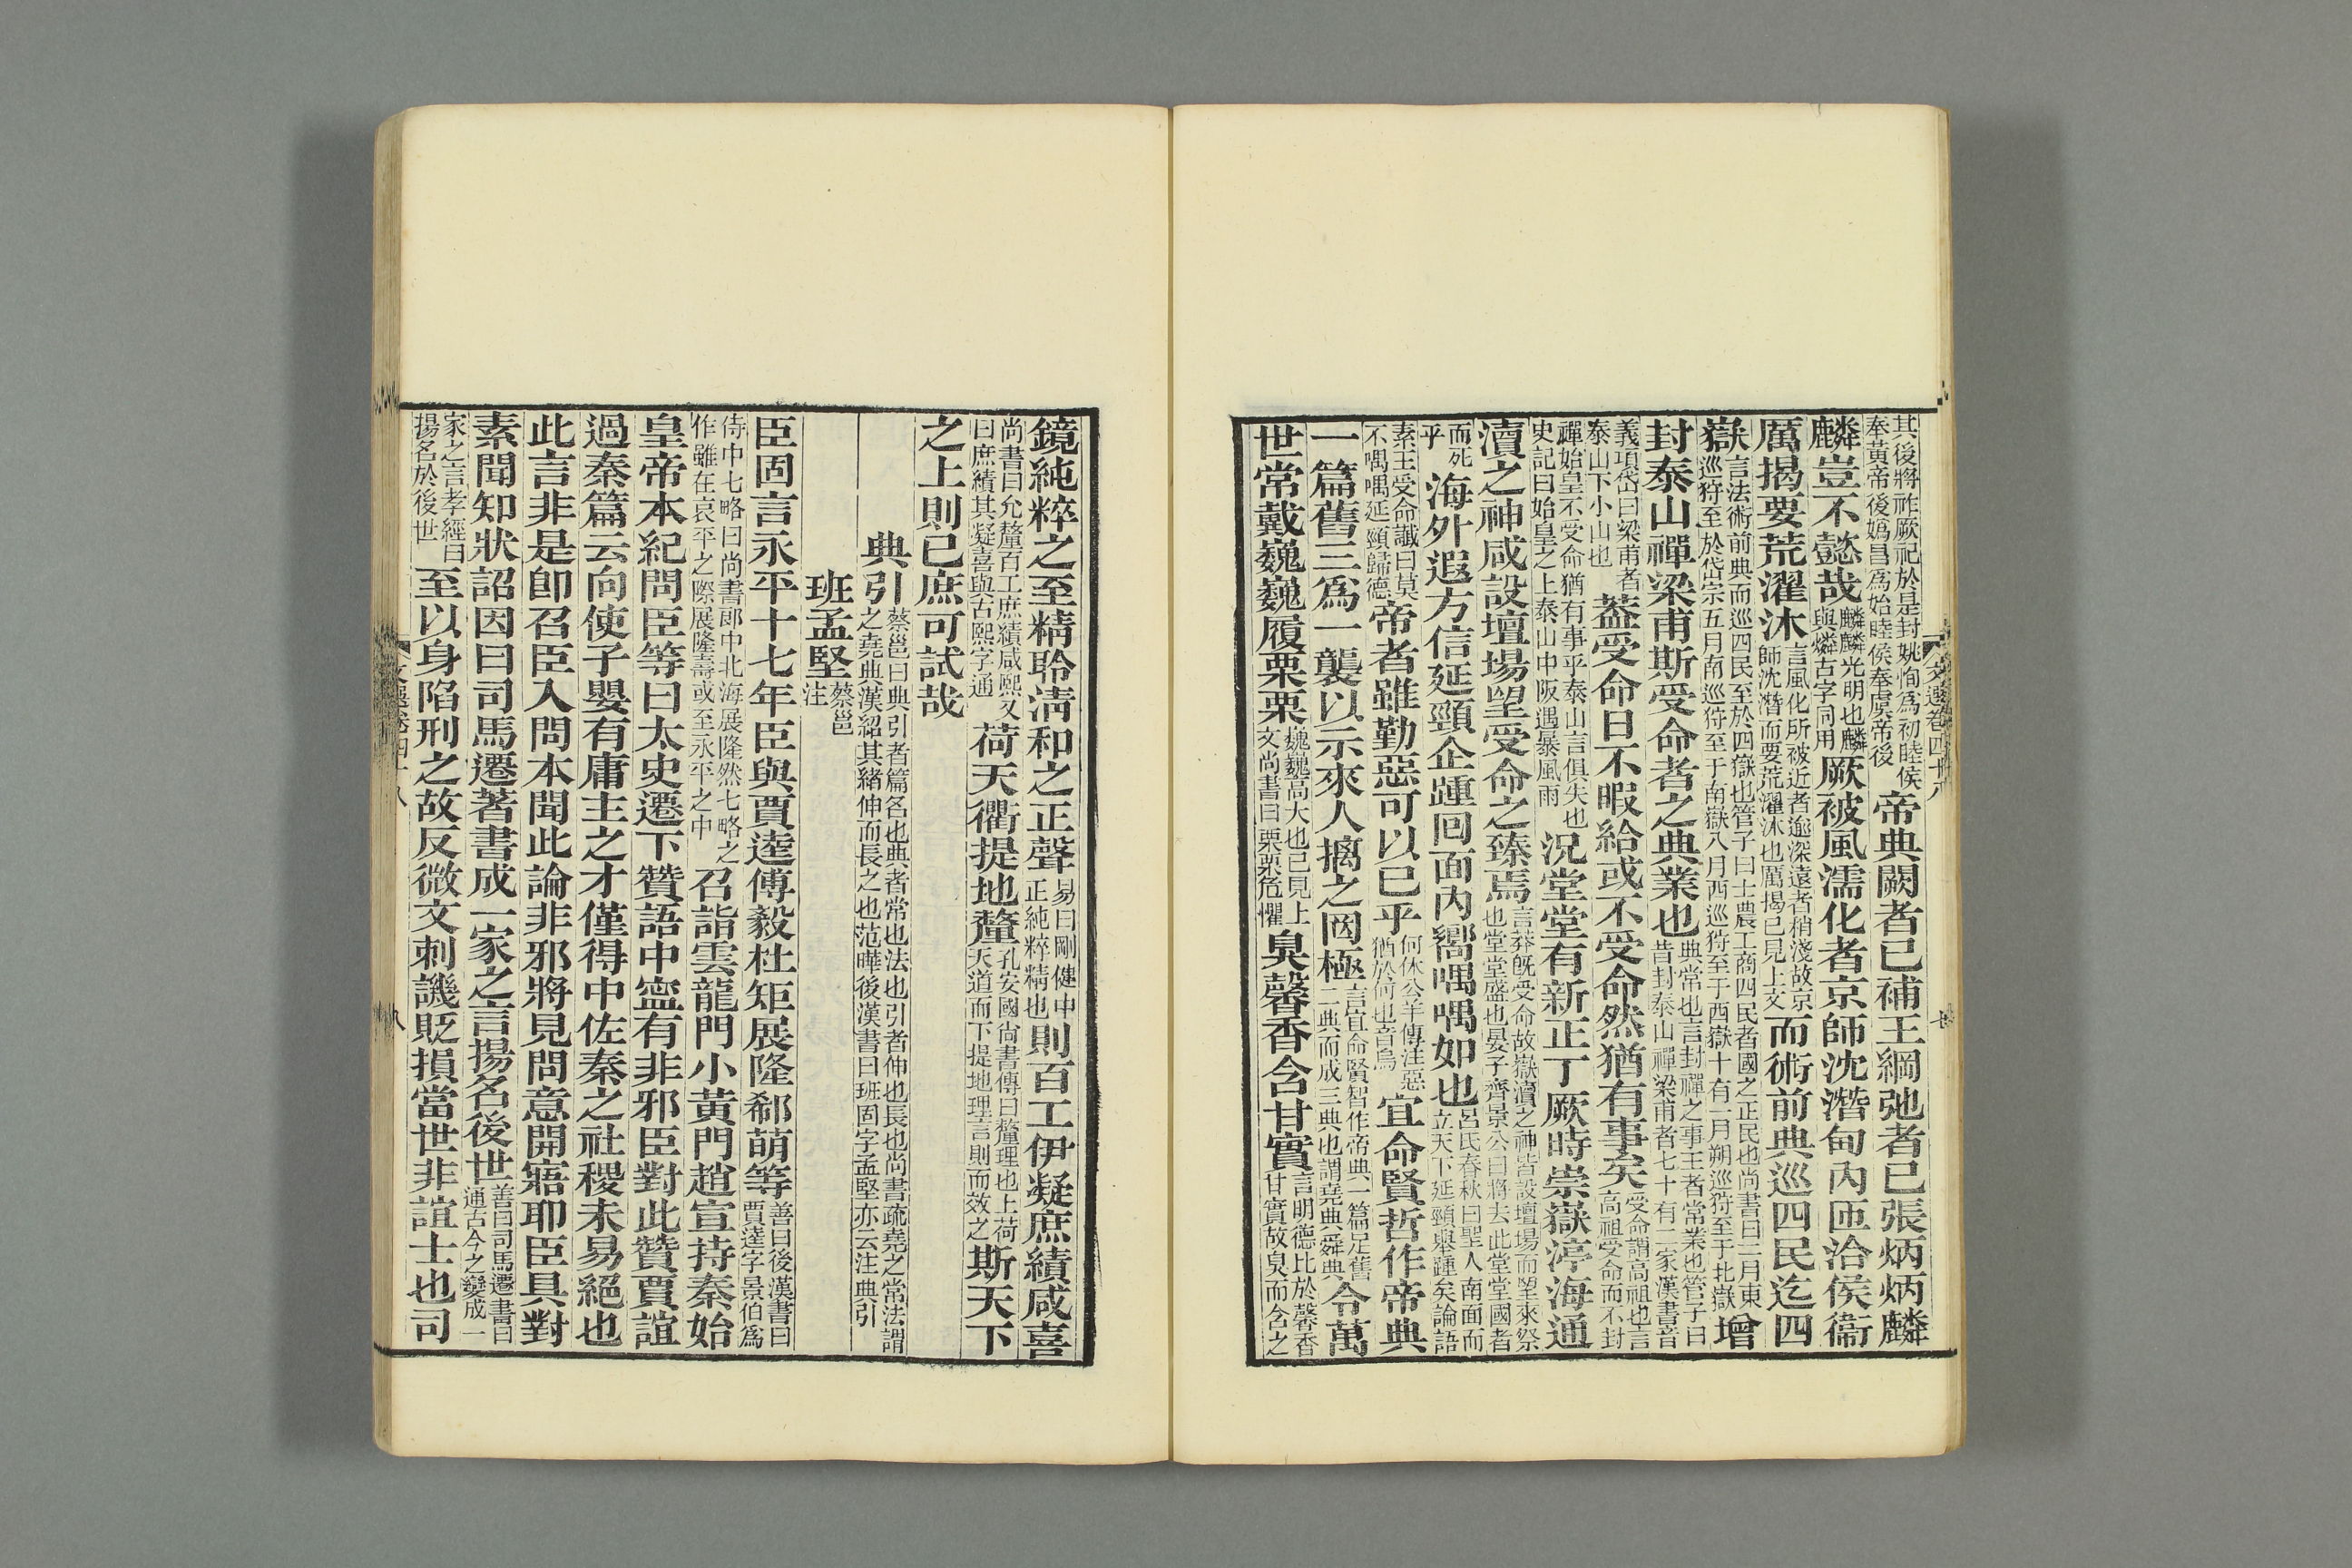 其後將祚厥祀於是封姚恂爲初睦侯奉黃帝後嬀昌爲始睦侯奉虞帝後帝典闕者已補王綱弛者已張炳炳麟
麟豈不懿哉麟麟光明也麟與燐古字同用厥被風濡化者京師沈潛甸內匝洽侯衞
厲揭要荒濯沐言風化所被近者逾深遠者稍淺故京師沈潛而要荒濯沐也厲揭已見上文而術前典巡四民迄四
嶽言法術前典而巡四民至於四嶽也管子曰士農工商四民者國之正民也尚書曰二月東巡狩至於岱宗五月南巡狩至于南嶽八月西巡狩至于西嶽十有一月朔巡狩至于北嶽增
封泰山禪梁甫斯受命者之典業也典常也言封禪之事王者常業也管子曰昔封泰山禪梁甫者七十有二家漢書音
義項岱曰梁甫者泰山下小山也葢受命日不暇給或不受命然猶有事矣受命謂高祖也言高祖受命而不封
禪始皇不受命猶有事乎泰山言俱失也史記曰始皇之上泰山中阪遇暴風雨況堂堂有新正丁厥時崇嶽渟海通
瀆之神咸設壇場望受命之臻焉言莽旣受命故嶽瀆之神皆設壇場而望來祭也堂堂盛也晏子齊景公曰將去此堂堂國者
而死乎海外遐方信延頸企踵回面內嚮喁喁如也呂氏春秋曰聖人南面而立天下延頸舉踵矣論語
素王受命讖曰莫不喁喁延頸歸德帝者雖勤惡可以已乎何休公羊傳注惡猶於何也音烏宜命賢哲作帝典
一篇舊三爲一襲以示來人摛之罔極言宜命賢智作帝典一篇足舊二典而成三典也謂堯典舜典令萬
世常戴巍巍履栗栗巍巍高大也已見上文尚書曰栗栗危懼臭馨香含甘實言明德比於馨香甘實故臭而含之
文選卷四十八
鏡純粹之至精聆淸和之正聲易曰剛健中正純粹精也則百工伊凝庶績咸喜
尚書曰允釐百工庶績咸熙又曰庶績其凝喜與古熙字通荷天衢提地釐孔安國尚書傳曰釐理也上荷天道而下提地理言則而效之斯天下
之上則已庶可試哉
典引蔡邕曰典引者篇名也典者常也法也引者伸也長也尚書疏堯之常法謂之堯典漢紹其緒伸而長之也范曄後漢書曰班固字孟堅亦云注典引
班孟堅蔡邕注
臣固言永平十七年臣與賈逵傅毅杜矩展隆郗萌等善曰後漢書曰賈逵字景伯爲
侍中七略曰尚書郎中北海展隆然七略之作雖在哀平之際展隆壽或至永平之中召詣雲龍門小黃門趙宣持秦始
皇帝本紀問臣等曰太史遷下贊語中寍有非邪臣對此贊賈誼
過秦篇云向使子嬰有庸主之才僅得中佐秦之社稷未易絕也
此言非是卽召臣入問本聞此論非邪將見問意開寤耶臣具對
素聞知狀詔因曰司馬遷著書成一家之言揚名後世善曰司馬遷書曰通古今之變成一
家之言孝經曰揚名於後世至以身陷刑之故反微文刺譏貶損當世非誼士也司